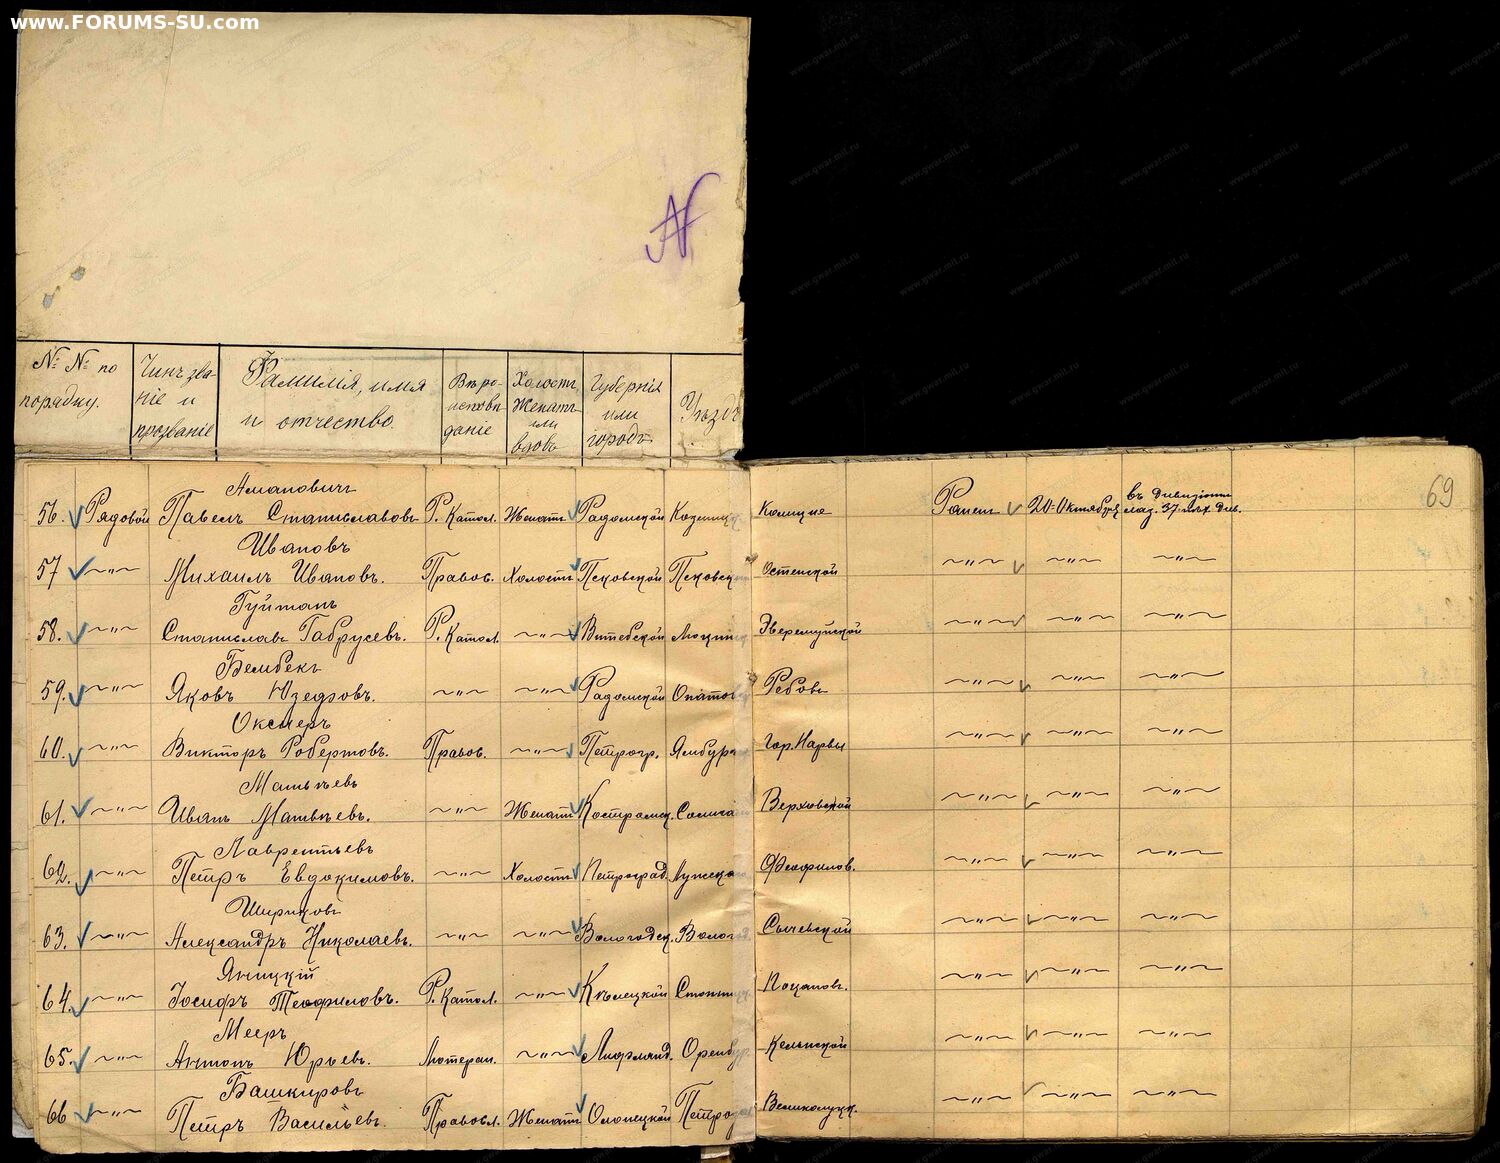 www.FORUMS-SU.com
69
№ № по порядку.
Чинъ зва-
ніе и
прозваніе
Фамилія, имя
и отчество.
Вѣро-
исповѣ-
даніе
Холостъ,
Женатъ
или
вдовъ
Губернія
или
городъ
Уѣздъ
Амановичъ
56. Рядовой Павелъ Станиславовъ Р. Катол. Женатъ Радомской Козениц Раненъ 20-Октября въ Дивизіонн
лаз. 37 пѣх. див.
Ивановъ
57 —"— Михаилъ Ивановъ. Правос. Холостъ Псковской Псковск Остенской —"— —"— —"—
58. —"— Станиславъ Габрусевъ. Р. Катол. —"— Витебской —"— —"— —"—
Бембекъ
59. —"— Яковъ Юзефовъ. —"— —"— Радомской Опатов Ребовъ —"— —"— —"—
60. —"— Викторъ Робертовъ. Правос. —"— Петрогр. Ямбург Гор. Нарвы —"— —"— —"—
Матвѣевъ
61. —"— Иванъ Матвѣевъ. —"— Женатъ Костромск. Солига Верховской —"— —"— —"—
Лаврентьевъ
62. —"— Петръ Евдокимовъ. —"— Холостъ Петроград. Лужско Феофилов. —"— —"— —"—
Шириковъ
63. —"— Александръ Николаевъ. —"— —"— Вологодск. Волог Сычевской —"— —"— —"—
Яницкій
64. —"— Іосифъ Теофиловъ. Р. Катол. —"— Кѣлецкой Стопниц Поцанов. —"— —"— —"—
Мееръ
65. —"— Антонъ Юрьевъ. Лютеран. —"— Лифлянд. Оренбур. Кельнской —"— —"— —"—
Башкировъ
66 —"— Петръ Васильевъ. Правосл. Женатъ Олонецкой Петроза Великолуцк. —"— —"— —"—